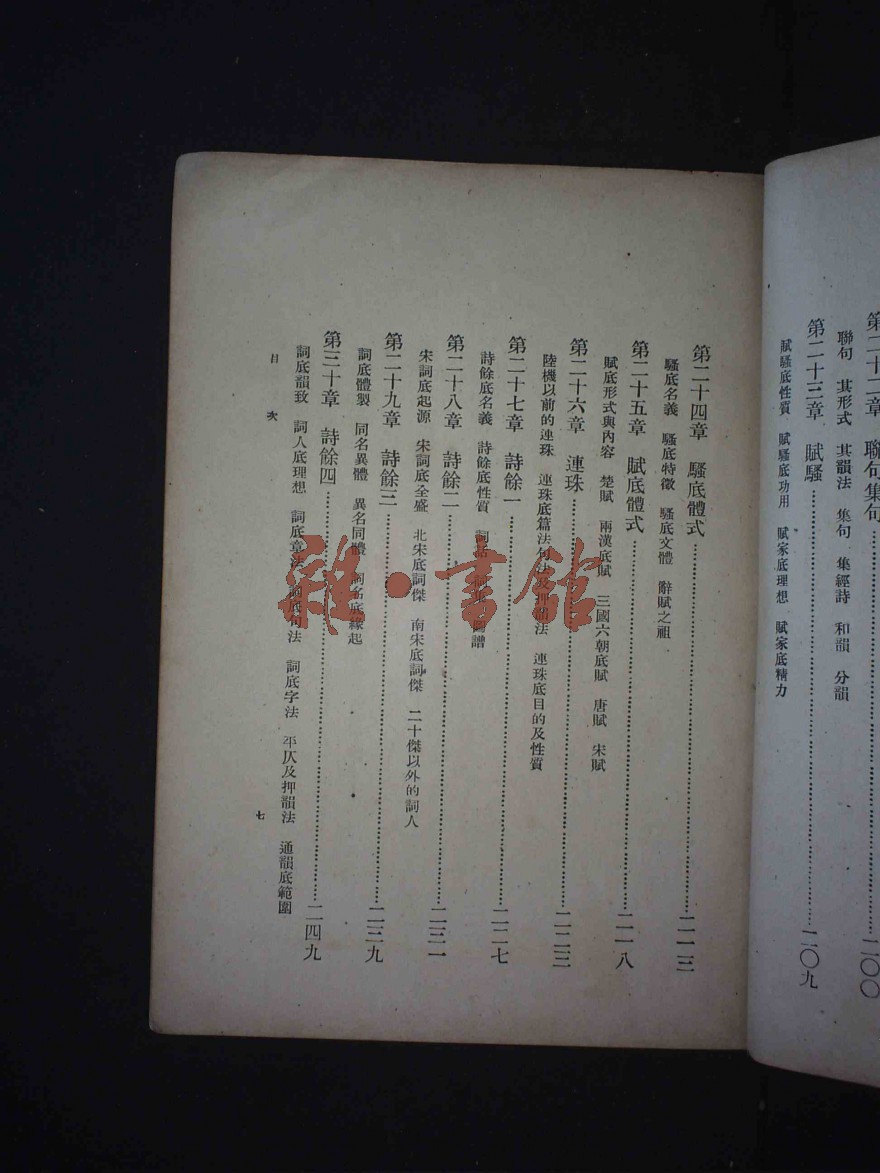 第二十二章 聯句集句……二〇〇
聯句 其形式 其韻法 集句 集經詩 和韻 分韻
第二十三章 賦騷……二〇九
賦騷底性質 賦騷底功用 賦家底理想 賦家底精力
第二十四章 騷底體式……二一三
騷底名義 騷底特徵 騷底文體 辭賦之祖
第二十五章 賦底體式……二一八
賦底形式與內容 楚賦 兩漢底賦 三國六朝底賦 唐賦 宋賦
第二十六章 連珠……二二三
陸機以前的連珠 連珠底篇法句法及押韻法 連珠底目的及性質
第二十七章 詩餘一……二二七
詩餘底名義 詩餘底性質 詞話 詞集 圖譜
第二十八章 詩餘二……二三一
宋詞底起源 宋詞底全盛 北宋底詞傑 南宋底詞傑 二十傑以外的詞人
第二十九章 詩餘三……二三九
詞底體製 同名異體 異名同體 詞名底緣起
第三十章 詩餘四……二四九
詞底韻致 詞人底理想 詞底章法 詞底句法 詞底字法 平仄及押韻法 通韻底範圍
目次 七
雜·書館